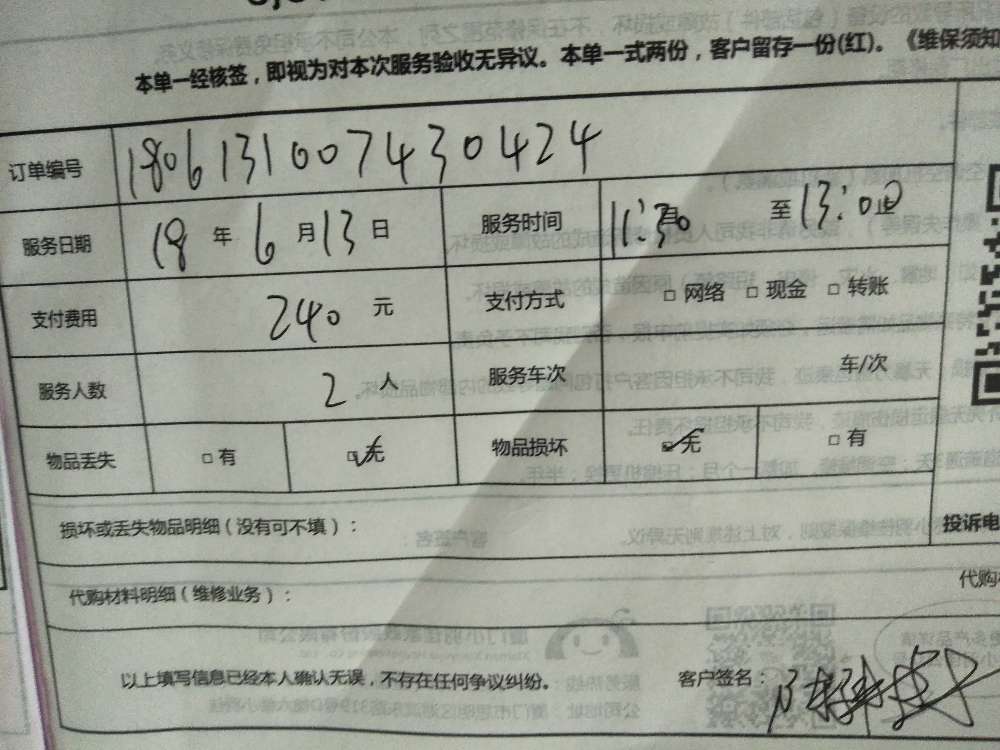 本单一经核签，即视为对本次服务验收无异议。本单一式两份，客户留存一份(红)。《维保须知
订单编号 180613100743 0424
服务日期 18 年 6 月 13 日 服务时间 11:30 至 13:00
支付费用 240 元 支付方式 □ 网络 □ 现金 □ 转账
服务人数 2 人 服务车次 车/次
物品丢失 □ 有 ☑ 无 物品损坏 ☑ 无 □ 有
损坏或丢失物品明细（没有可不填）：
投诉电
代购材料明细（维修业务）：
代购
以上填写信息已经本人确认无误，不存在任何争议纠纷。 客户签名：